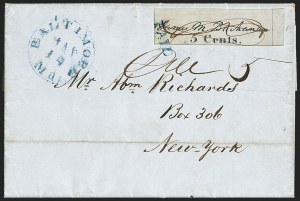 BALTIMORE
MD
James M. Buchanan
5 Cents.
PAID
5
Mr Abm Richards
Box 306
New-York